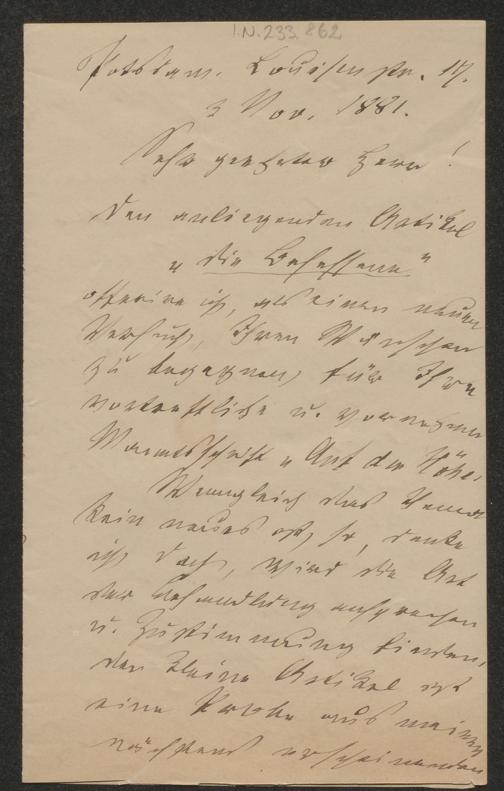 I.N. 233.862
Potsdam. Louisenstr. 17.
3 Nov. 1881.
Sehr geehrter Herr!
Den anliegenden Artikel
„die Besessene“
offerire ich, als einen neuen
Versuch, Ihren Wünschen
zu begegnen, für Ihre
vortreffliche u. vornehme
Monatsschrift „Auf der Höhe.
Wenngleich das Thema
kein neues ist, so, denke
ich doch, wird die Art
der Behandlung ansprechen
u. Zustimmung finden,
der kleine Artikel ist
eine Probe aus meinem
nächstens erscheinenden